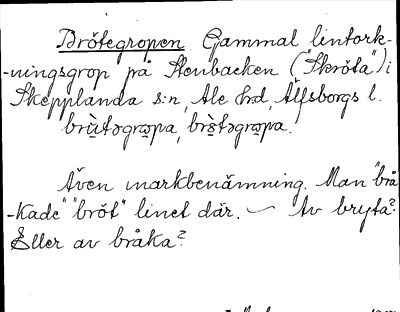 Brötegropen Gammal lintork-
-ningsgrop på Stenbacken ("Skröta") i
Skepplanda s:n, Ale hd, Älfsborgs l.
brù̀təgrɷpa, brö̀təgrɷpa.
Även markbenämning. Man "brå
-kade" "bröt" linet där. — Av bryta?
Eller av bråka?